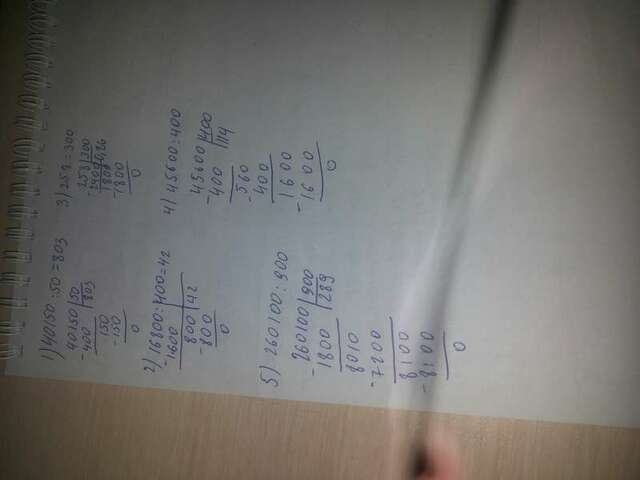 1) 40150:50=803
- 40150 | 50
400 | 803
150
- 150
0
2) 16800:400=42
- 1600 | 42
800
- 800
0
3) 258 = 300
- 258 | 300
2400
1800
- 1800
0
4) 45600:400
- 45600 | 400
400 | 114
- 560
400
1600
- 1600
0
5) 260100:900
- 260100 | 900
1800 | 289
8010
- 7200
8100
- 8100
0